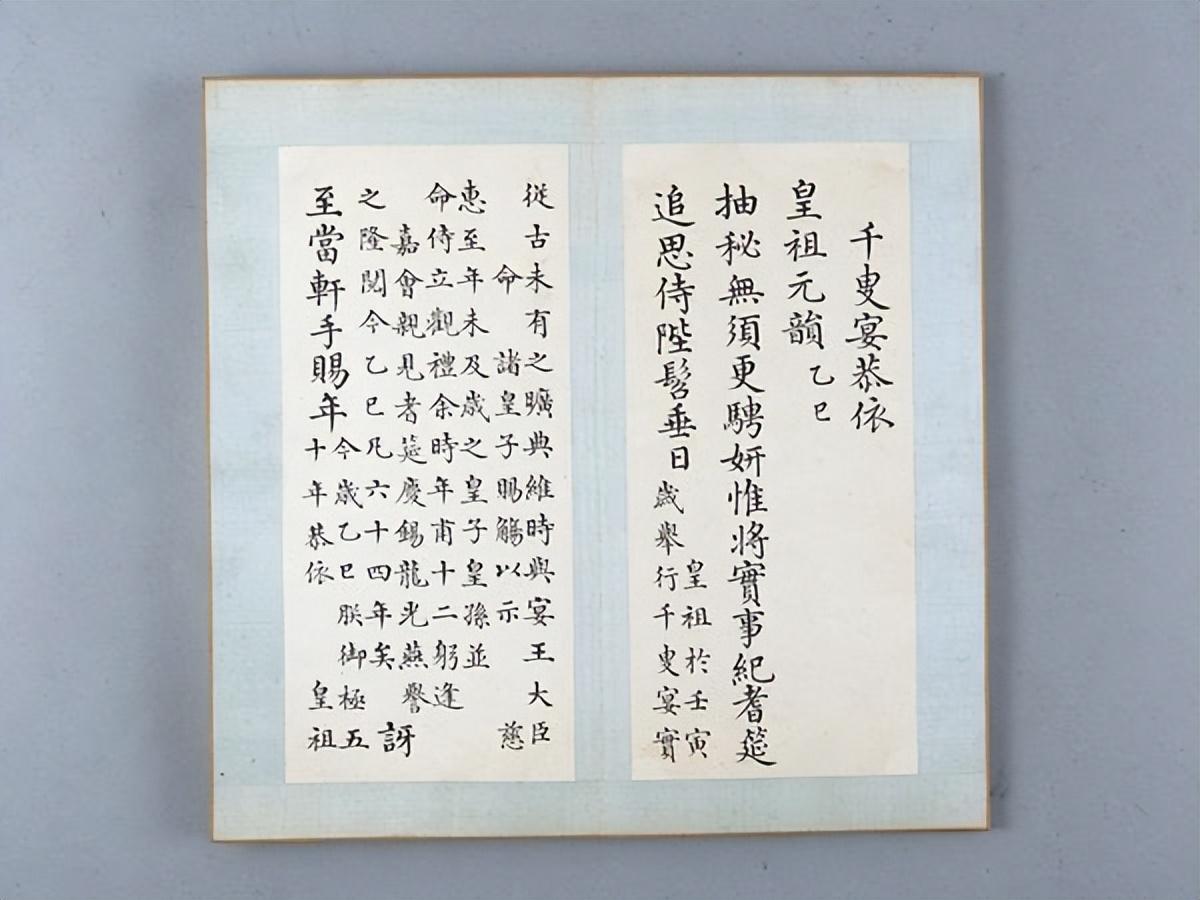 千叟宴恭依
皇祖元韻 乙巳
抽秘無須更騁妍惟將實事紀耆筵
追思侍陛髫垂日
皇祖於壬寅
歲舉行千叟宴實
從古未有之曠典維時與宴王大臣
命諸皇子賜觴以示慈
惠至年未及歲之皇子皇孫並
命侍立觀禮余時年甫十二躬逢
嘉會親見耆筵慶錫龍光燕譽
之隆閱今乙巳凡六十四年矣
訝
至當軒手賜年
今歲乙巳朕御極五
十年恭依皇祖